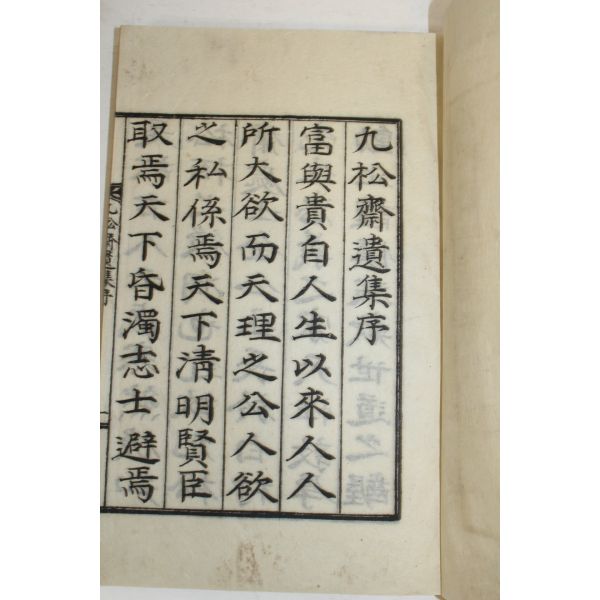 九松齋遺集序
富與貴自人生以來人人
所大欲而天理之公人欲
之私係焉天下清明賢臣
取焉天下昏濁志士避焉
九松齋遺集序